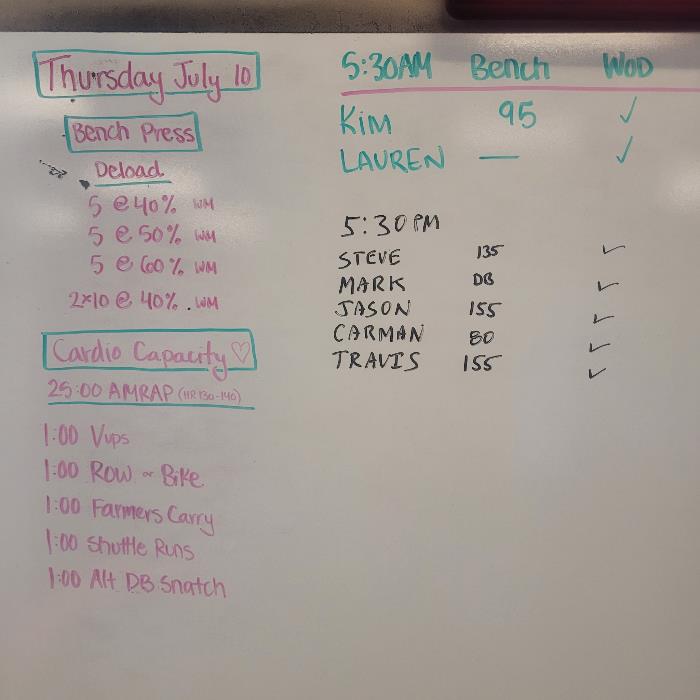 Thursday July 10
Bench Press
Deload
5 @ 40% WM
5 @ 50% WM
5 @ 60% WM
2x10 @ 40% . WM
Cardio Capacity ♡
25:00 AMRAP (HR 130-140)
1:00 Vups
1:00 Row or Bike
1:00 Farmers Carry
1:00 Shuttle Runs
1:00 Alt DB Snatch
5:30AM Bench WOD
KIM 95 ✓
LAUREN — ✓
5:30 PM
STEVE 135 ✓
MARK DB ✓
JASON 155 ✓
CARMAN 80 ✓
TRAVIS 155 ✓